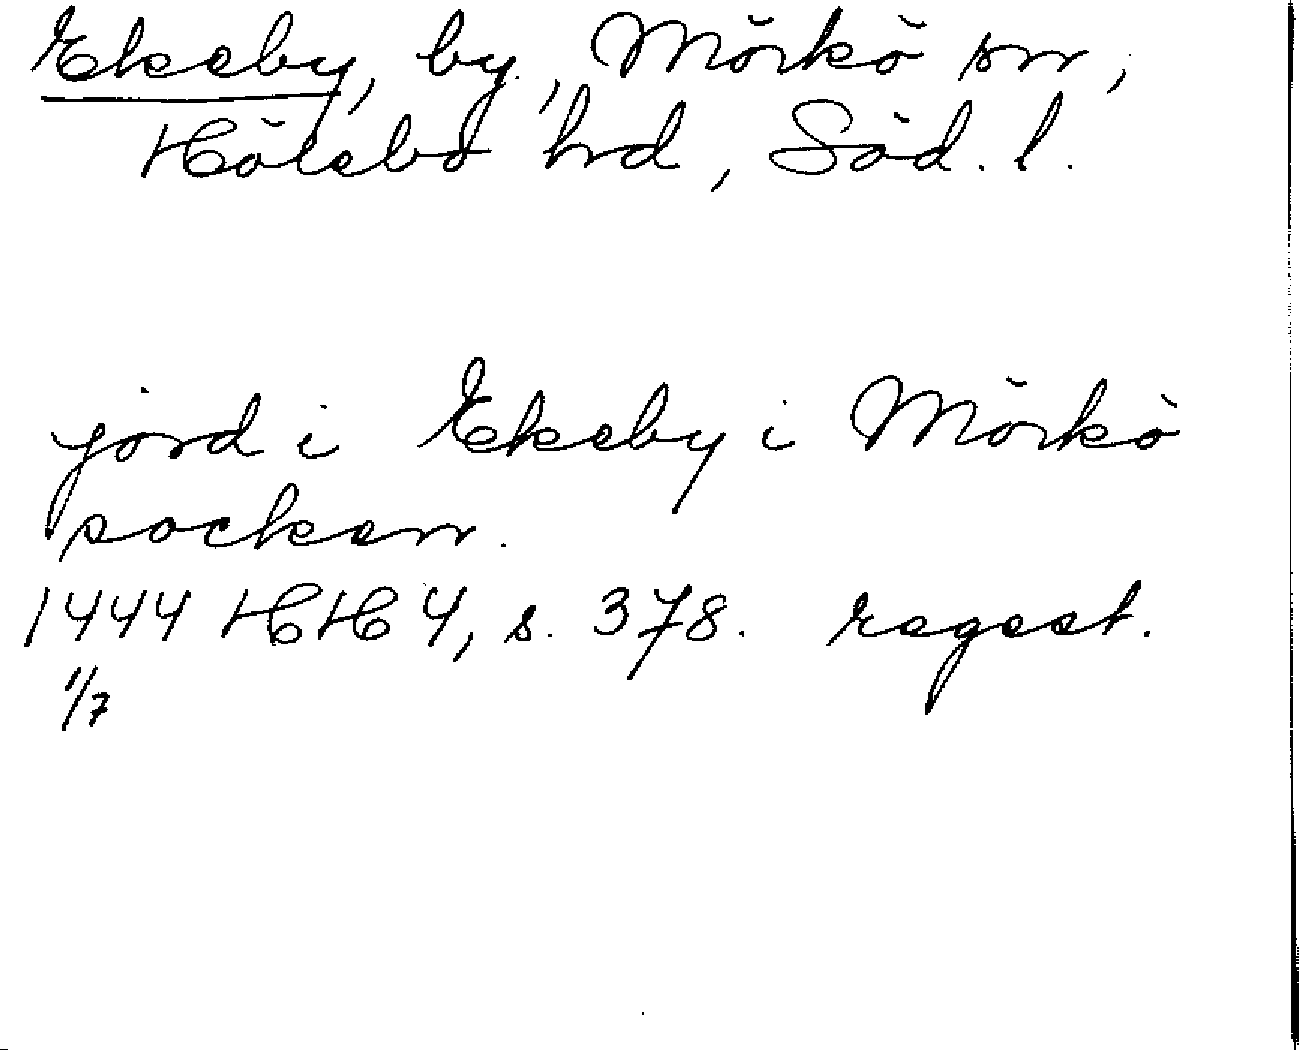 Ekeby, by, Mörkö sn,
Hölebo hd, Söd. l.
jord i Ekeby i Mörkö
socken.
1444 HH 4, s. 378. regest.
1/7